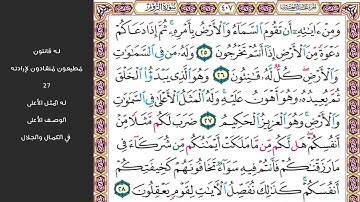 ٤٠٧
له قانتون
مُطيعون مُنقادون لإرادته
27
له المثل الأعلى
الوصف الأعلى
في الكمال والجلال
وَمِنْ ءَايَٰتِهِۦٓ أَن تَقُومَ ٱلسَّمَآءُ وَٱلْأَرْضُ بِأَمْرِهِۦ ۚ ثُمَّ إِذَا دَعَاكُمْ
دَعْوَةً مِّنَ ٱلْأَرْضِ إِذَآ أَنتُمْ تَخْرُجُونَ ٢٥ وَلَهُۥ مَن فِى ٱلسَّمَٰوَٰتِ
وَٱلْأَرْضِ ۖ كُلٌّ لَّهُۥ قَٰنِتُونَ ٢٦ وَهُوَ ٱلَّذِى يَبْدَؤُا۟ ٱلْخَلْقَ
ثُمَّ يُعِيدُهُۥ وَهُوَ أَهْوَنُ عَلَيْهِ ۚ وَلَهُ ٱلْمَثَلُ ٱلْأَعْلَىٰ فِى ٱلسَّمَٰوَٰتِ
وَٱلْأَرْضِ ۚ وَهُوَ ٱلْعَزِيزُ ٱلْحَكِيمُ ٢٧ ضَرَبَ لَكُم مَّثَلًا مِّنْ
أَنفُسِكُمْ ۖ هَل لَّكُم مِّن مَّا مَلَكَتْ أَيْمَٰنُكُم مِّن شُرَكَآءَ فِى
مَا رَزَقْنَٰكُمْ فَأَنتُمْ فِيهِ سَوَآءٌ تَخَافُونَهُمْ كَخِيفَتِكُمْ
أَنفُسَكُمْ ۚ كَذَٰلِكَ نُفَصِّلُ ٱلْءَايَٰتِ لِقَوْمٍ يَعْقِلُونَ ٢٨